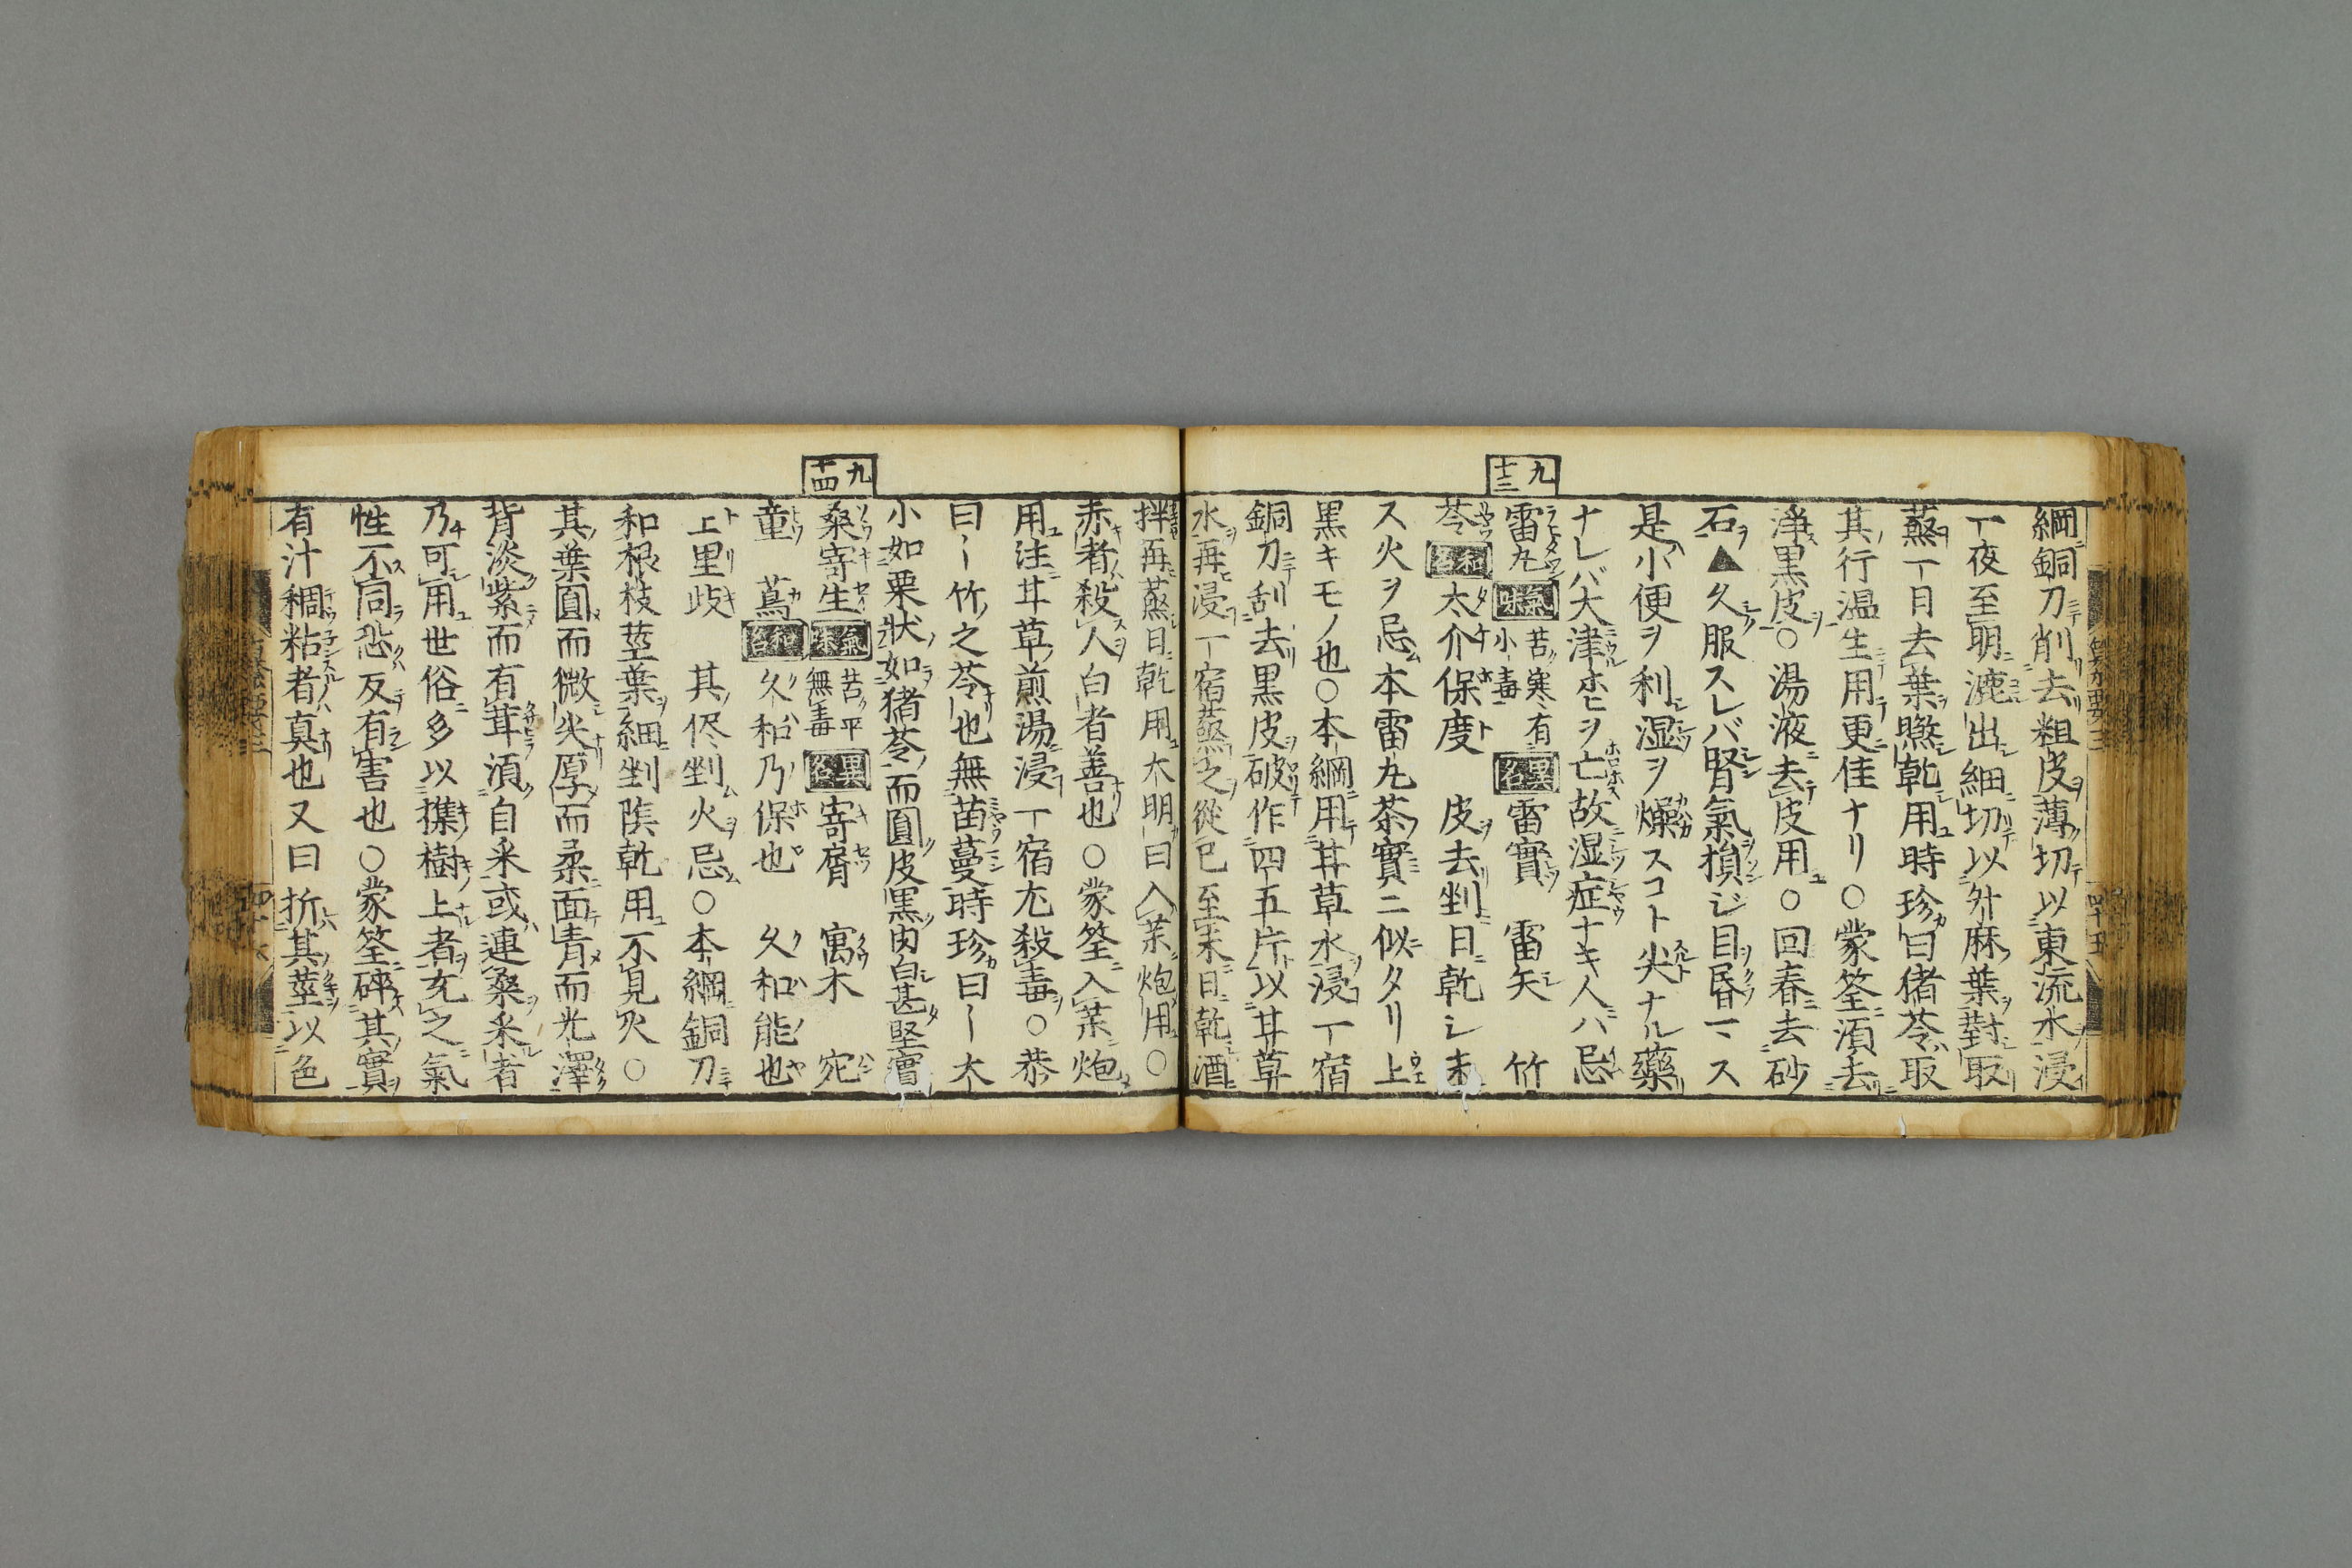 九
十三
綱銅刀削去粗皮薄切以東流水浸
一夜至明漉出細切以外麻葉對取
蒸一日去葉㬠乾用時珍曰猪苓取
其行温生用更佳ナリ○蒙筌湏去
淨黒皮○湯液去皮用○回春去砂
石▲久服スレバ腎氣損ジ目昏マス
是小便ヲ利湿ヲ燥スコト尖ナル藥
ナレバ大津ヲ亡故湿症ナキ人ハ忌
雷丸 氣味 苦寒有小毒 異名 雷實 雷矢 竹
苓 和名 太介保度 皮去剉日乾シ末
ス火ヲ忌本雷丸茶實ニ似タリ上
黒キモノ也○本綱用甘草水浸一宿
銅刀刮去黒皮破作四五片以甘草
水再浸一宿蒸之從巳至未日乾酒
拌再蒸日乾用大明曰入藥炮用○
赤者殺人白者善也○蒙筌入藥炮
用注甘草煎湯浸一宿尤殺毒○恭
曰〡竹之苓也無苗蔓時珍曰〡大
小如栗狀如猪苓而圓皮黒肉白甚堅實
九
十四
桒寄生 氣味 苦平無毒 異名 寄屑 寓木 宛
童 蔦 和名 久和乃保也 久和能也
上里歧 其侭剉火忌○本綱銅刀
和根枝莖葉細剉陰乾用不見火○
其葉圓而微尖厚而柔面青而光澤
背淡紫而有茸湏自采或連桒采者
乃可用世俗多以雜樹上者充之氣
性不同恐反有害也○蒙筌碎其實
有汁稠粘者真也又曰折其莖以色